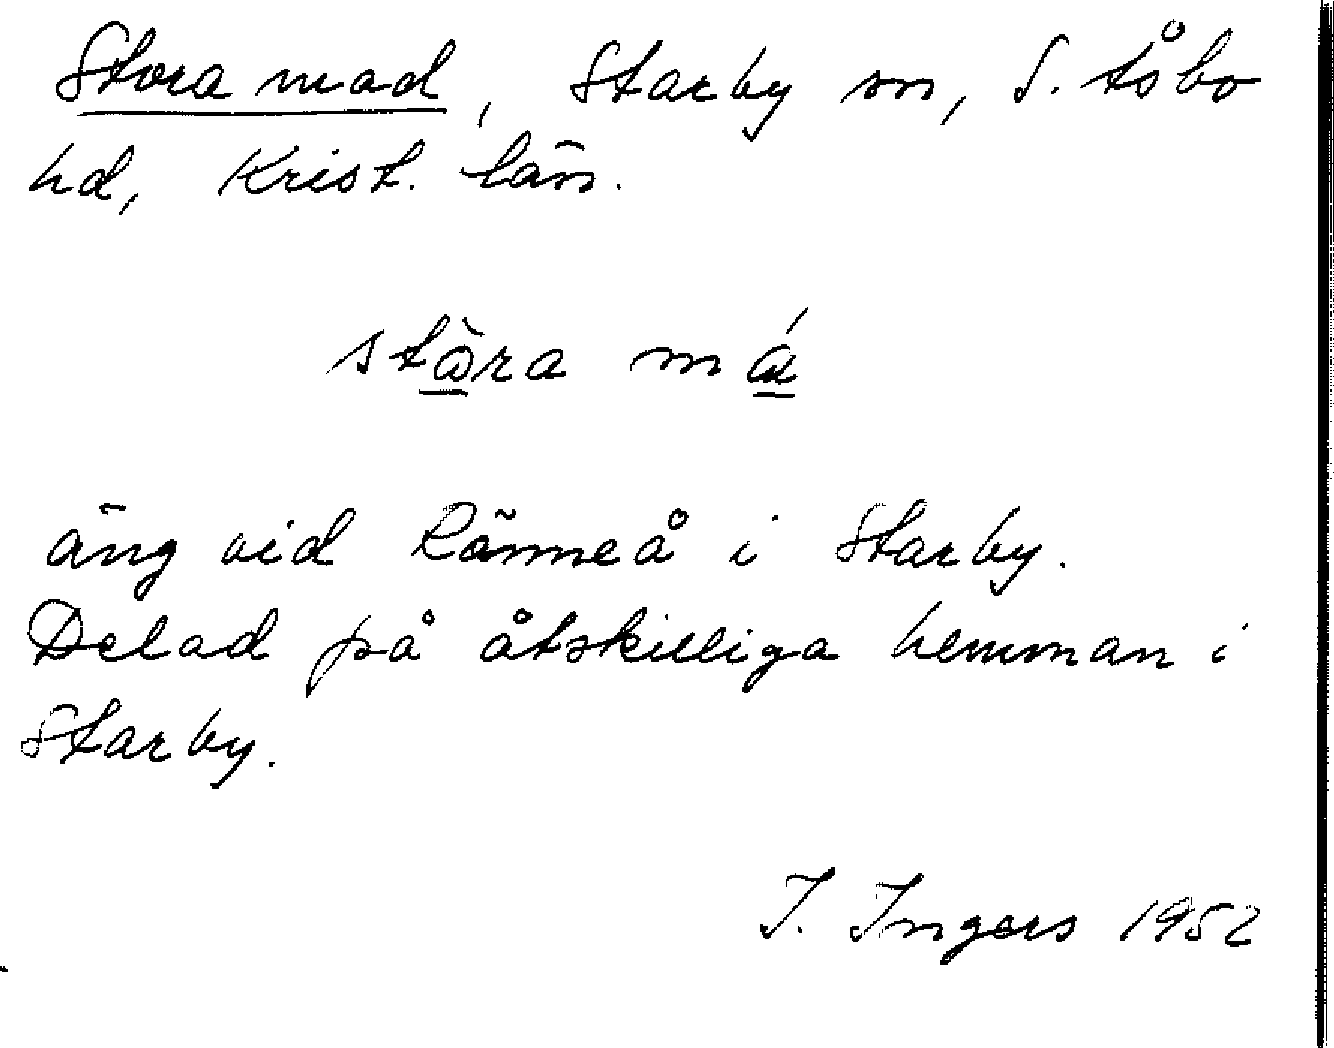 Stora mad, Starby sn, S. Åsbo
hd, Krist. län.
stòra má
äng vid Rönneå i Starby.
Delad på åtskilliga hemman i
Starby.
I. Ingers 1952